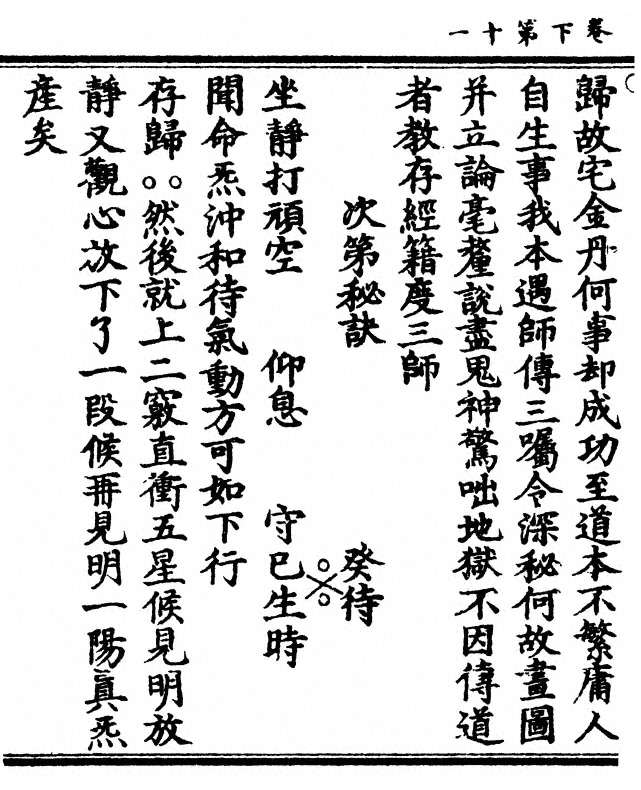 卷下第十一
歸故宅金丹何事却成功至道本不繁庸人
自生事我本遇師傳三囑令深秘何故畫圖
并立論毫釐說盡鬼神驚咄地獄不因傳道
者教存經籍度三師
次第秘訣 癸待
坐靜打頑空 仰息 守巳生時
聞命炁沖和待氣動方可如下行
存歸○○然後就上二竅直衝五星候見明放
靜又觀心放下了一段候再見明一陽真炁
產矣